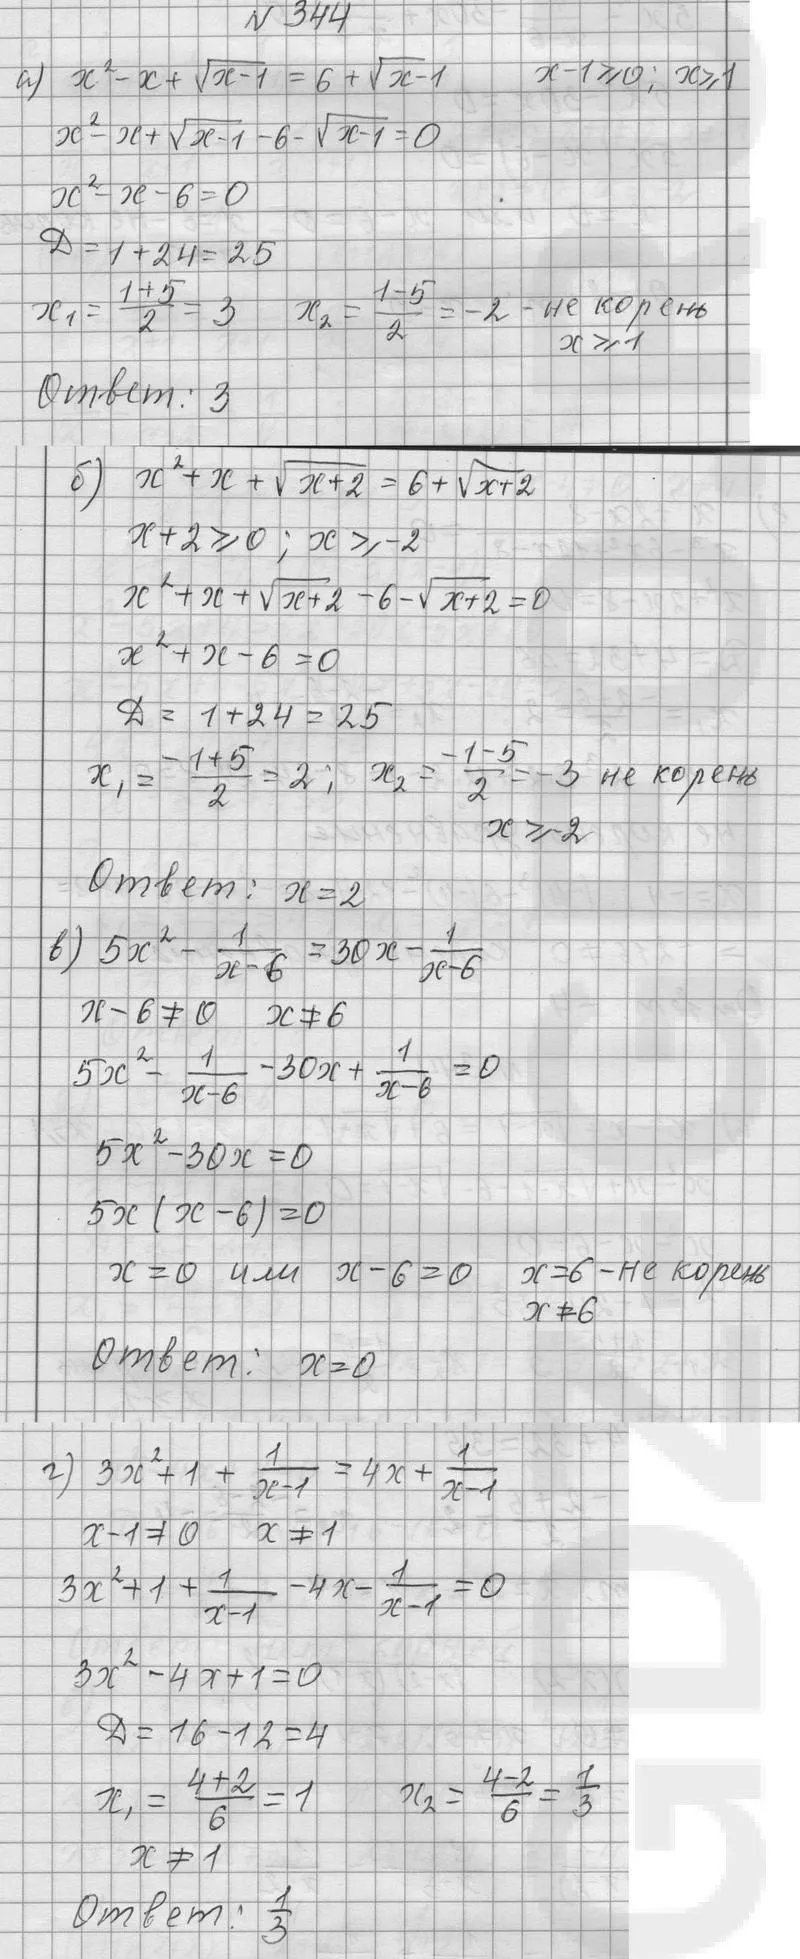 N 344
а) x² - x + √(x-1) = 6 + √(x-1)   x-1≥0; x≥1
x² - x + √(x-1) - 6 - √(x-1) = 0
x² - x - 6 = 0
Д = 1+24 = 25
x₁ = (1+5)/2 = 3   x₂ = (1-5)/2 = -2 - не корень
x≥1
Ответ: 3
б) x² + x + √(x+2) = 6 + √(x+2)
x+2≥0; x≥-2
x² + x + √(x+2) - 6 - √(x+2) = 0
x² + x - 6 = 0
Д = 1+24 = 25
x₁ = (-1+5)/2 = 2; x₂ = (-1-5)/2 = -3 не корень
x≥-2
Ответ: x=2
в) 5x² - 1/(x-6) = 30x - 1/(x-6)
x-6≠0   x≠6
5x² - 1/(x-6) - 30x + 1/(x-6) = 0
5x² - 30x = 0
5x(x-6) = 0
x=0 или x-6=0   x=6 - не корень
x≠6
Ответ: x=0
г) 3x² + 1 + 1/(x-1) = 4x + 1/(x-1)
x-1≠0   x≠1
3x² + 1 + 1/(x-1) - 4x - 1/(x-1) = 0
3x² - 4x + 1 = 0
Д = 16-12 = 4
x₁ = (4+2)/6 = 1   x₂ = (4-2)/6 = 1/3
x≠1
Ответ: 1/3